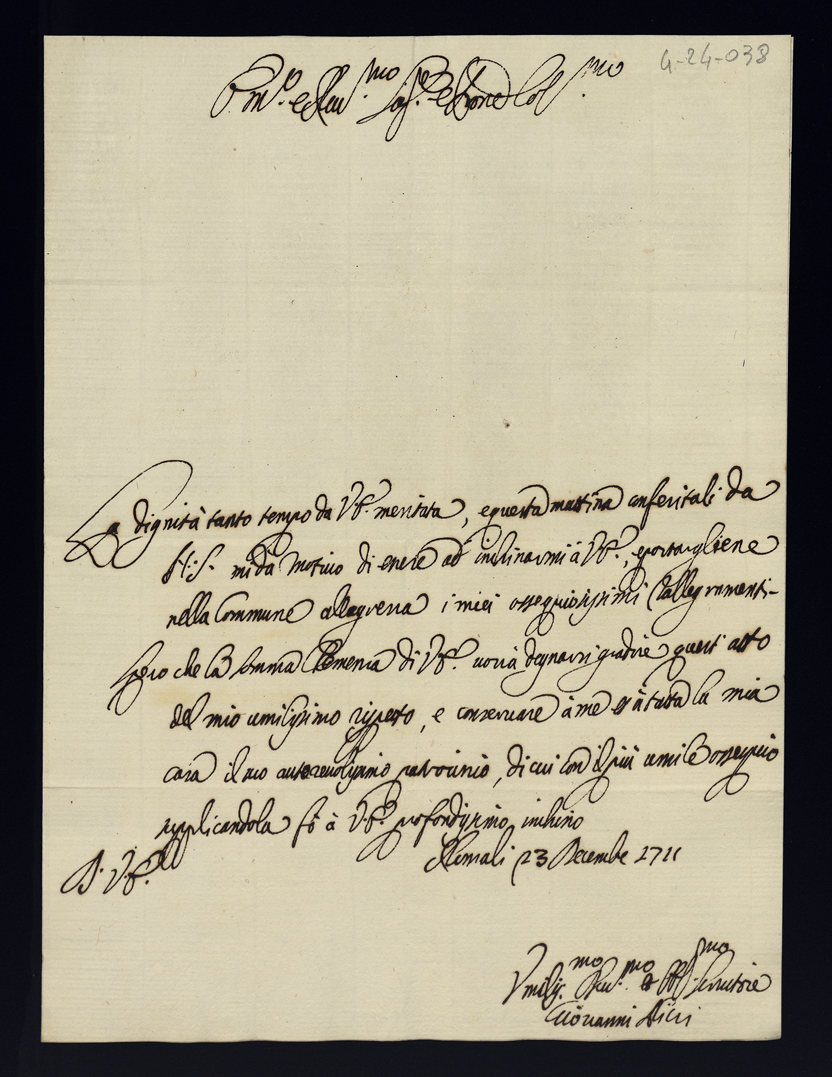 4-24-038
Em.o e Reu.mo Sig.re e Prone Col.mo
La dignità tanto tempo da V.E. meritata, e questa mattina conferitali da
N: S: mi dà motivo di enere ad inchinarmi à V.E., e portargliene
nella Commune allegrezza i miei ossequiosissimi rallegramenti-
Spero che la somma Clemenza di V.E. vorrà degnarsi gradire quest' atto
del mio umilissimo rispetto, e conservare à me et à tutta la mia
casa il suo autorevolissimo patrocinio, di cui con il più umile ossequio
supplicandola fò à V.E. profondissimo inchino
Di V.E.
23 Decembre 1711
Vmiliss.mo Deu.mo et Obl.mo Servitore
Giovanni Ricci